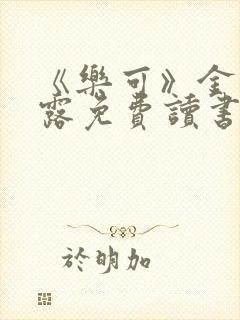 《樂可》全
露免費讀書
於明加